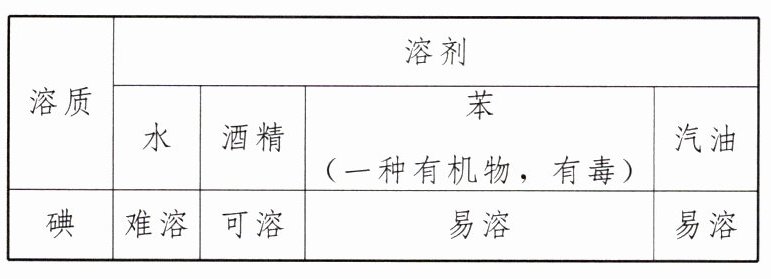 溶质
溶剂
水
酒精
苯
(一种有机物，有毒)
汽油
碘
难溶
可溶
易溶
易溶